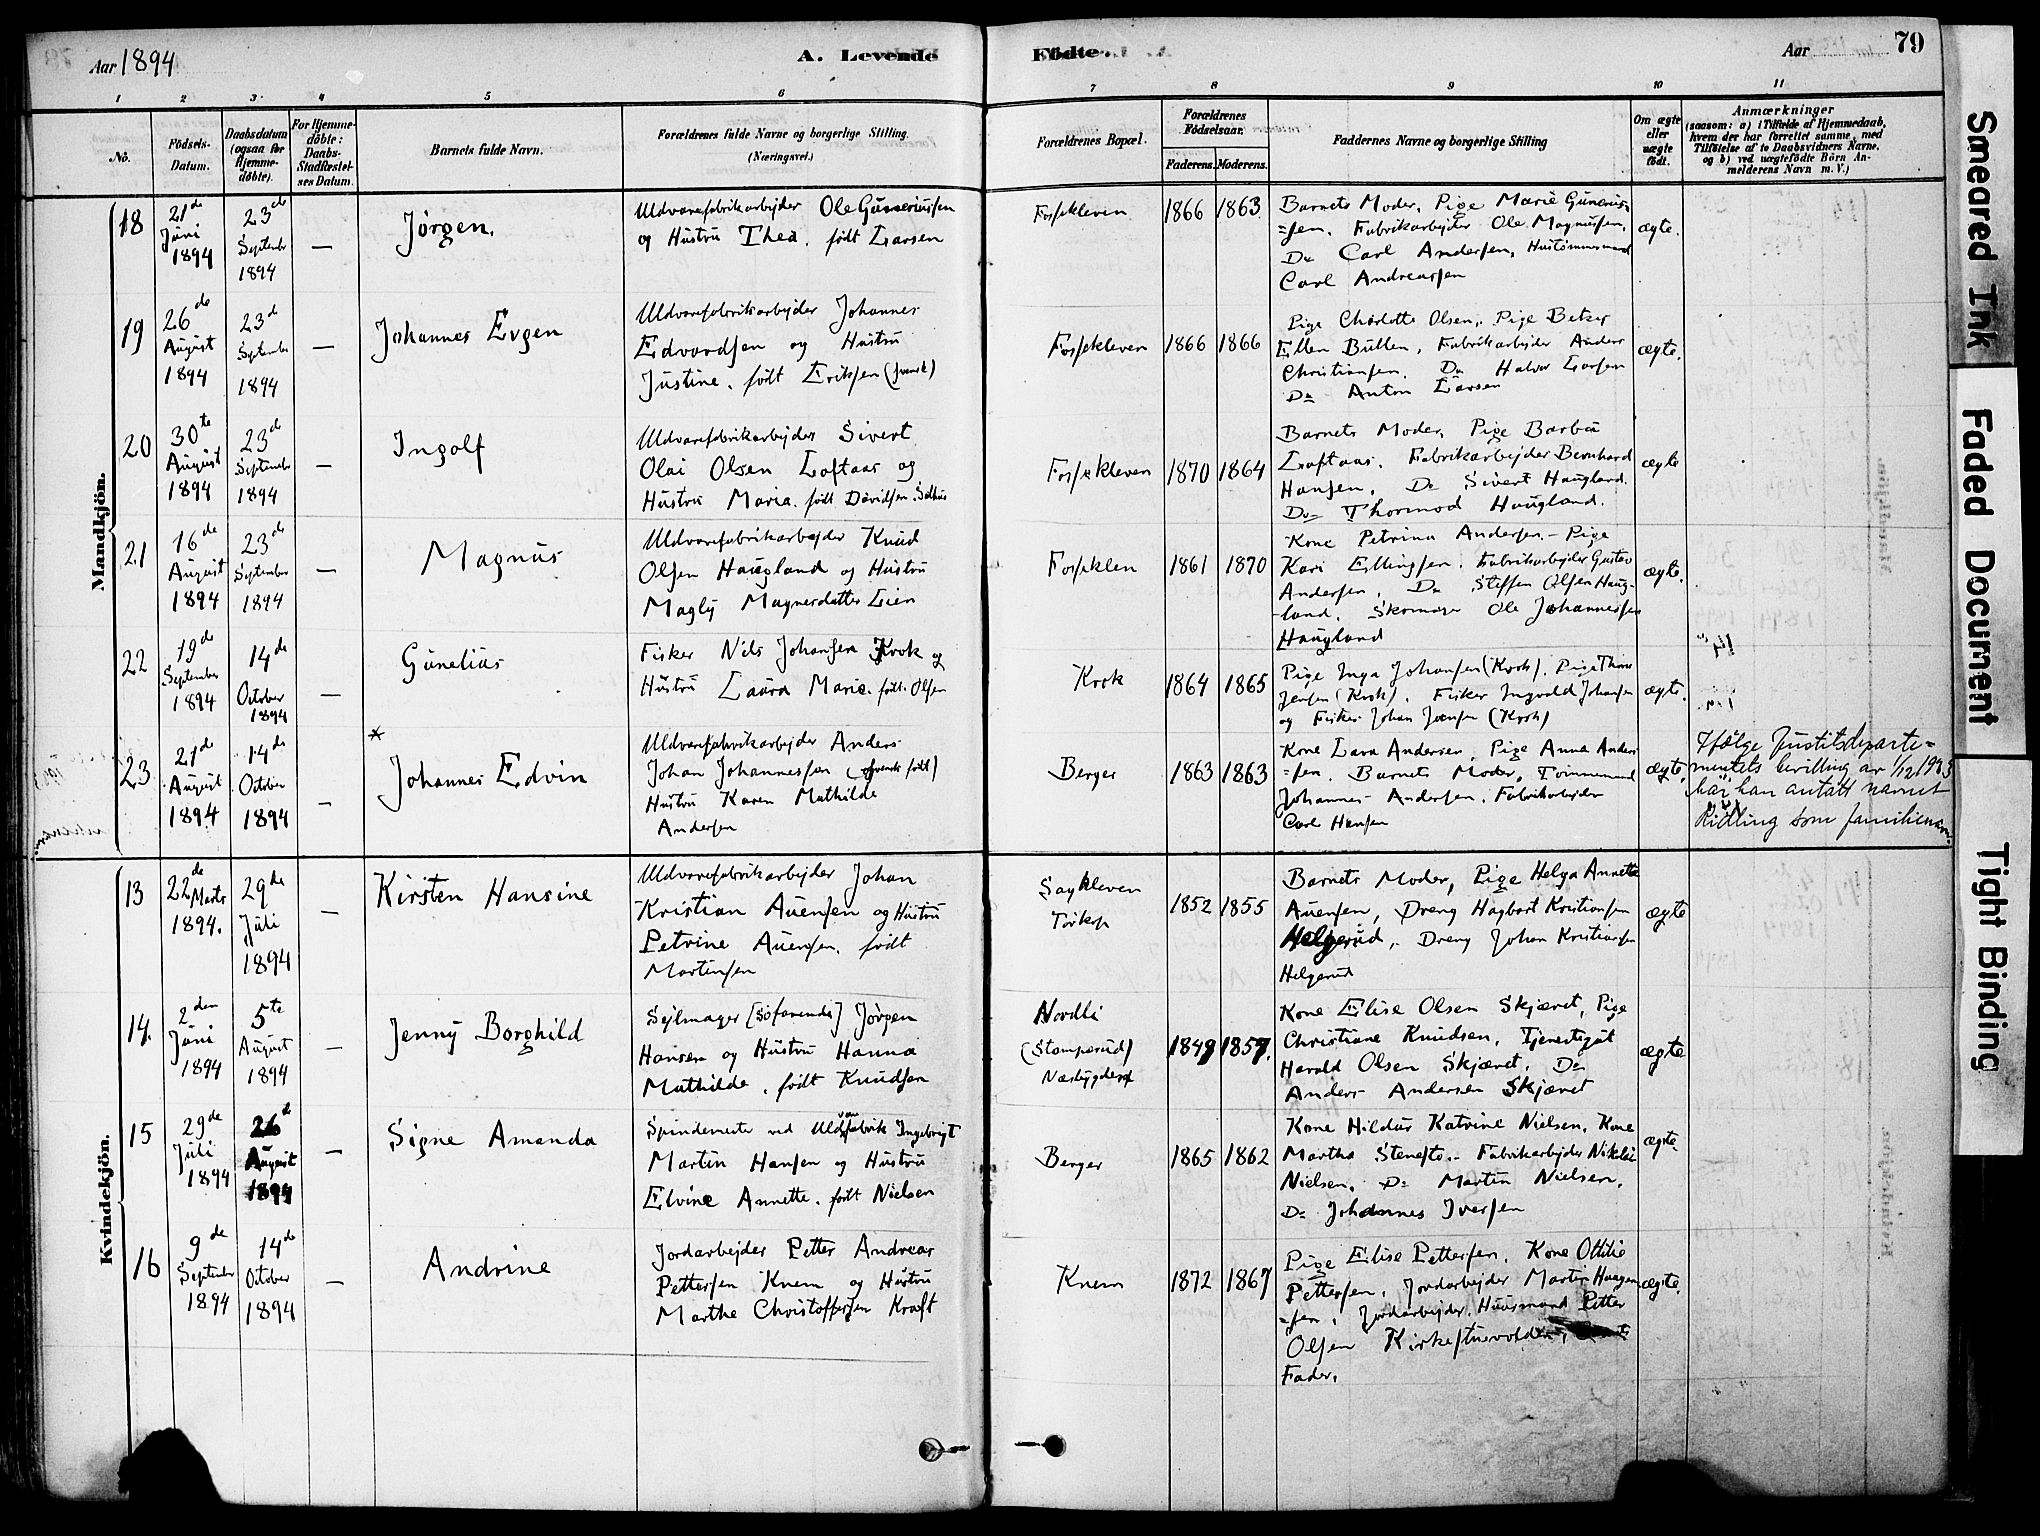 Aar 1894
A. Levende
Födte.
Aar
79
1 2 3 4 5 6 7 8 9 10 11
No.
Födsels-
Datum.
Daabsdatum
(ogsaa for
Hjemme-
döbte).
For Hjemme-
döbte:
Daabs-
Stadfæstel-
ses Datum.
Barnets fulde Navn.
Forældrenes fulde Navne og borgerlige Stilling.
(Næringsvei.)
Forældrenes Bopæl.
Forældrenes
Födselsaar.
Faderens. Moderens.
Faddernes Navne og borgerlige Stilling
Om ægte
eller
uægte
födt.
Anmærkninger
(saasom: a) i Tilfælde af Hjemmedaab,
hvem der har forrettet samme, med
Tilföielse af to Daabsvidners Navne,
og b) ved uægtefödte Börn An-
melderens Navn m. V.)
Mandkjön.
18
21de
Juni
1894
23de
September
1894
—
Jørgen.
Uldvarefabrikarbejder Ole Gunneriussen
og Hustru Thea. født Larsen
Fossekleven
1866 1863
Barnets Moder, Pige Marie Gunerius-
=sen. Fabrikarbejder Ole Magnussen,
Do Carl Andersen, Hustømmermand
Carl Andreassen
ægte.
19
26de
August
1894
23d
September
1894
—
Johannes Evgen
Uldvarefabrikarbejder Johannes
Edvardsen og Hustru
Justine. født Eriksen (svensk)
Fossekleven
1866 1866
Pige Charlotte Olsen, Pige Betzy
Ellen Bullen, Fabrikarbejder Anders
Christiansen. Do Halvor Larsen
Do Anton Larsen
ægte.
20
30te
August
1894
23d
September
1894
—
Ingolf
Uldvarefabrikarbejder Sivert
Olai Olsen Loftaas og
Hustru Maria. født Davidsen
Fossekleven
1870 1864
Barnets Moder, Pige Barbra
Loftaas. Fabrikarbejder Bernhard
Hansen, Do Sivert Haugland.
Do Thormod Haugland.
ægte
21
16de
August
1894
23de
September
1894
—
Magnus
Uldvarefabrikarbejder Knud
Olsen Haugland og Hustru
Magly Magnesdatter Lien
Fosseklen
1861 1870
Kone Petrina Andersen – Pige
Kari Ellingsen. Fabrikarbejder Gustav
Andersen, Do Steffen Olsen Haug-
-land. Skomager Ole Johannessen
Haugland
ægte.
22
19de
September
1894
14de
October
1894
—
Gunelius
Fisker Nils Johansen Krok og
Hustru Laura Marie. født. Olsen
Krok
1864 1865
Pige Inga Johansen (Krok). Pige Thina
Jensen (Krok). Fisker Ingvald Johansen
og Fisker Johan Jensen (Krok)
ægte.
23
21de
August
1894
14de
October
1894
—
*
Johannes Edvin
Uldvarefabrikarbejder Anders
Johan Johannessen (svensk født)
Hustru Karen Mathilde
Andersen
Berger
1863 1863
Kone Lava Andersen, Pige Anna Anders
=sen. Barnets Moder, Tømmermand
Johannes Andersen. Fabrikarbejder
Carl Hansen
ægte.
Ifølge Justitsdeparte=
mentets bevilling av 1/12 1923
har han antatt navnet
Ridling som familienavn.
Kvindekjön.
13
22de Marts
1894.
29de
Juli
1894
—
Kirsten Hansine
Uldvarefabrikarbejder Johan
Kristian Auensen og Hustru
Petrine Auensen. født
Martinsen
Saykleven
1852 1855
Barnets Moder, Pige Helga Annette
Auensen, Dreng Hagbart Kristiansen
Helgerud, Dreng Johan Kristiansen
Helgerud
ægte
14.
2den
Juni
1894
5te
August
1894
—
Jenny Borghild
Sejlmager [Søfarende] Jørgen
Hansen og Hustru Hanna
Mathilde. født Knudsen
Nordli
(Stamperud)
1849 1857.
Kone Elise Olsen Skjæret, Pige
Christiane Knudsen, Tjenestegut
Harald Olsen Skjæret. Do
Anders Andersen Skjæret
ægte
15
29de
Juli
1894
26de
August
1894
—
Signe Amanda
Spindemester ved Uldvarefabrik Ingebrigt
Martin Hansen og Hustru
Elvine Annette. født Nielsen
Berger
1865 1862
Kone Hildur Katrine Nielsen, Kone
Martha Stenefto. Fabrikarbejder Nikolai
Nielsen. Do Martin Nielsen.
Do Johannes Iversen
ægte.
16
9de
September
1894
14de
October
1894
—
Andrine
Jordarbejder Petter Andreas
Pettersen Knem og Hustru
Marthe Christoffersen Kraft
Knem
1872 1867
Pige Elise Pettersen. Kone Ottilie
Pettersen, Jordarbejder Martin Haagen
=sen, Jordarbejder. Huusmand Petter
Olsen Kirkestuevolden,
Fader.
ægte.
Smeared Ink
Faded Document
Tight Binding